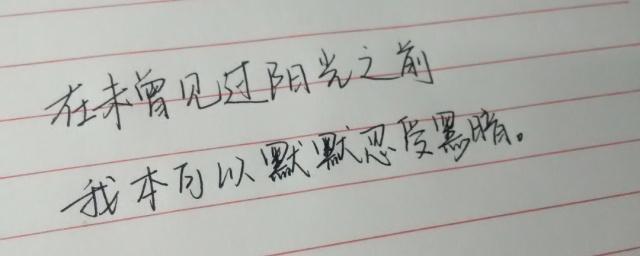 在未曾见过阳光之前
我本可以默默忍受黑暗。